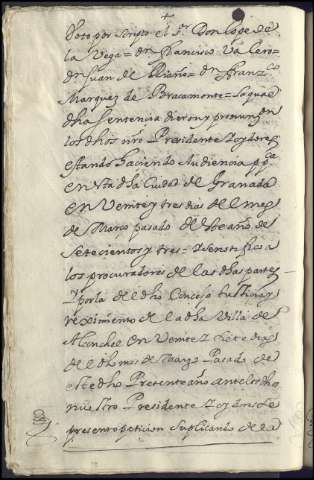 +
Voto por scripto el Sr. Don Lope de
la Vega = Dn Francisco
Dn Juan de = Dn Franco
Marquez de Bracamonte = La qual
dha Sentencia dieron y pronunon
los dhos nro Presidente y oydores
estando haciendo Audiencia ppca
en esta dha Ciudad de Granada
en Veinte y tres dias del mes
de Marzo pasado deste año de
setecientos y tres = y se notifico a
los procuradores de las dhas partes
y por la del dho Concejo Justicia y
reximiento de la dha Villa de
en Veinte y siete dias
del dho mes de Marzo Pasado de
este dho Presente año ante los dhos
nuestro Presidente y oydores se
presento peticion suplicando de la